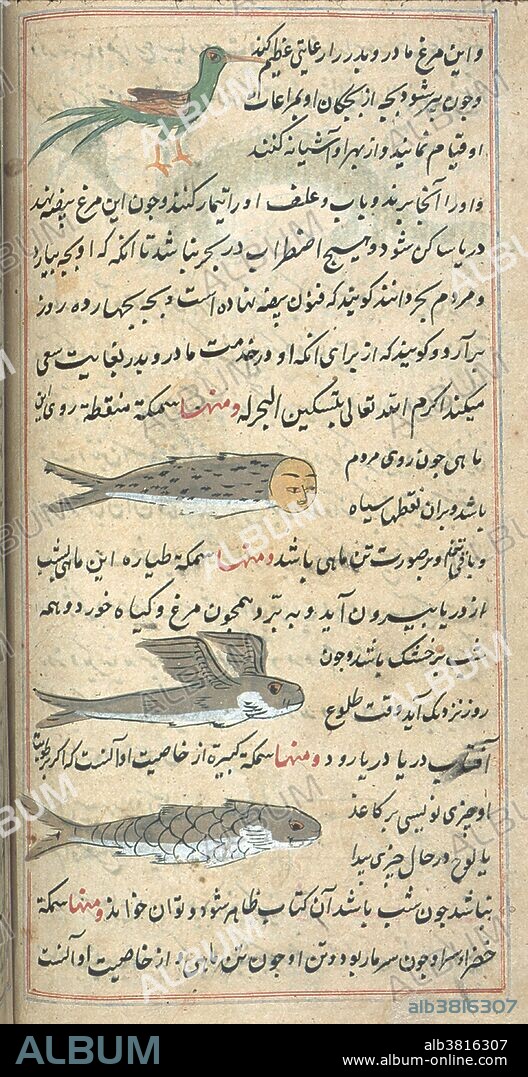 و این مرغ مادر و پدر را رعایتی عظیم کند
و جون پیر شود بجه از بجکان او بمراعات
او قیام نمایند و از بهر او آشیانه کنند
و او را آنجا برند و باب و علف او را تیمار کنند و جون این مرغ بیضه نهد
دریا ساکن شود و هیچ اضطراب در بحر نباشد تا آنکه که او بجه بیارد
و مردم بحر دانند کویند که قنون بیضه نهاده است و بجه بجهارده روز
برآرد و کویند که از برای آنکه او در خدمت مادر و پدر بغایت سعی
میکند اکرم الله تعالی بتسکین البحر له ومنها سمکة منقطة روی این
ماهی جون روی مردم
باشد و بران نقطها سیاه
و باقی تنش بر صورت تن ماهی باشد ومنها سمکة طیاره این ماهی بشب
از دریا بیرون آید و به پرد همجون مرغ و کیاه خورد و همه
شب بر خشک باشد و جون
روز نزدیک آید وقت طلوع
آفتاب در دریا رود ومنها سمکة کبیرة از خاصیت او آنست که اکر
او جزی نویسی بر کاغذ
یا لوح در حال جیزی پیدا
نباشد جون شب باشد آن کتاب ظاهر شود و توان خواند ومنها سمکة
خضرا سر او جون سر مار بود و تن او جون تن ماهی و از خاصیت او آنست
ALBUM
alb3816307
ALBUM
alb3816307
www.album-online.com